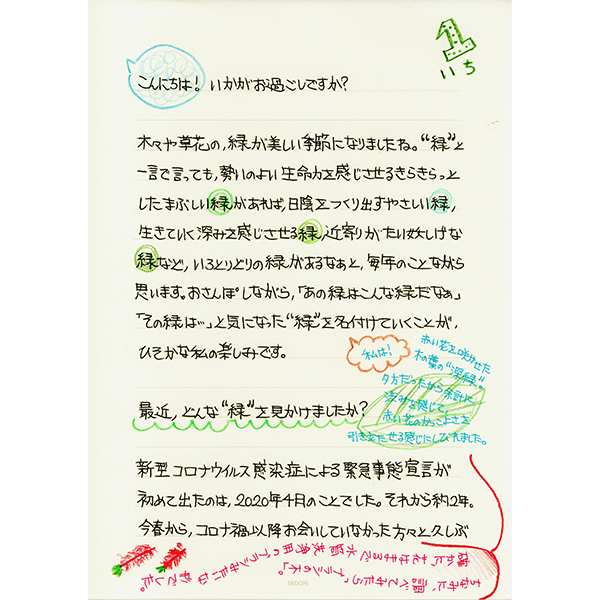 1
いち
こんにちは! いかがお過ごしですか?
木々や草花の,緑が美しい季節になりましたね。“緑”と
一言で言っても,勢いのよい生命力を感じさせるきらきらっと
したまぶしい緑があれば,日陰をつくり出すやさしい緑,
生きていく深みを感じさせる緑,近寄りがたい妖しげな
緑など,いろとりどりの緑があるなぁと,毎年のことながら
思います。おさんぽしながら,「あの緑はこんな緑だなぁ」
「その緑は…」と気になった“緑”を名付けていくことが,
ひそかな私の楽しみです。
私は!
赤い花を咲かせた
木の葉の“深緑”。
夕方だったから余計に
深みを感じて,
赤い花のかっこよさを
引き立たせる感じにしびれました。
最近,どんな“緑”を見かけましたか?
新型コロナウイルス感染症による緊急事態宣言が
初めて出たのは,2020年4月のことでした。それから約2年。
今春から,コロナ禍以降お会いしていなかった方々と久しぶ
ちなみに,調べてみたら,「ブラシの木」。
確かに,たなまるで水筒洗浄用のブラシみたいな形でした。
MIDORI